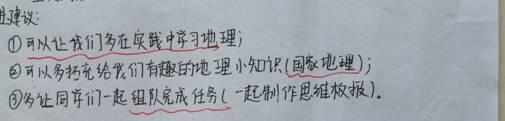 进建议:
①可以让我们多在实践中学习地理;
②可以多拓充给我们有趣的地理小知识(国家地理);
③多让同学们一起组队完成任务(一起制作思维板报).